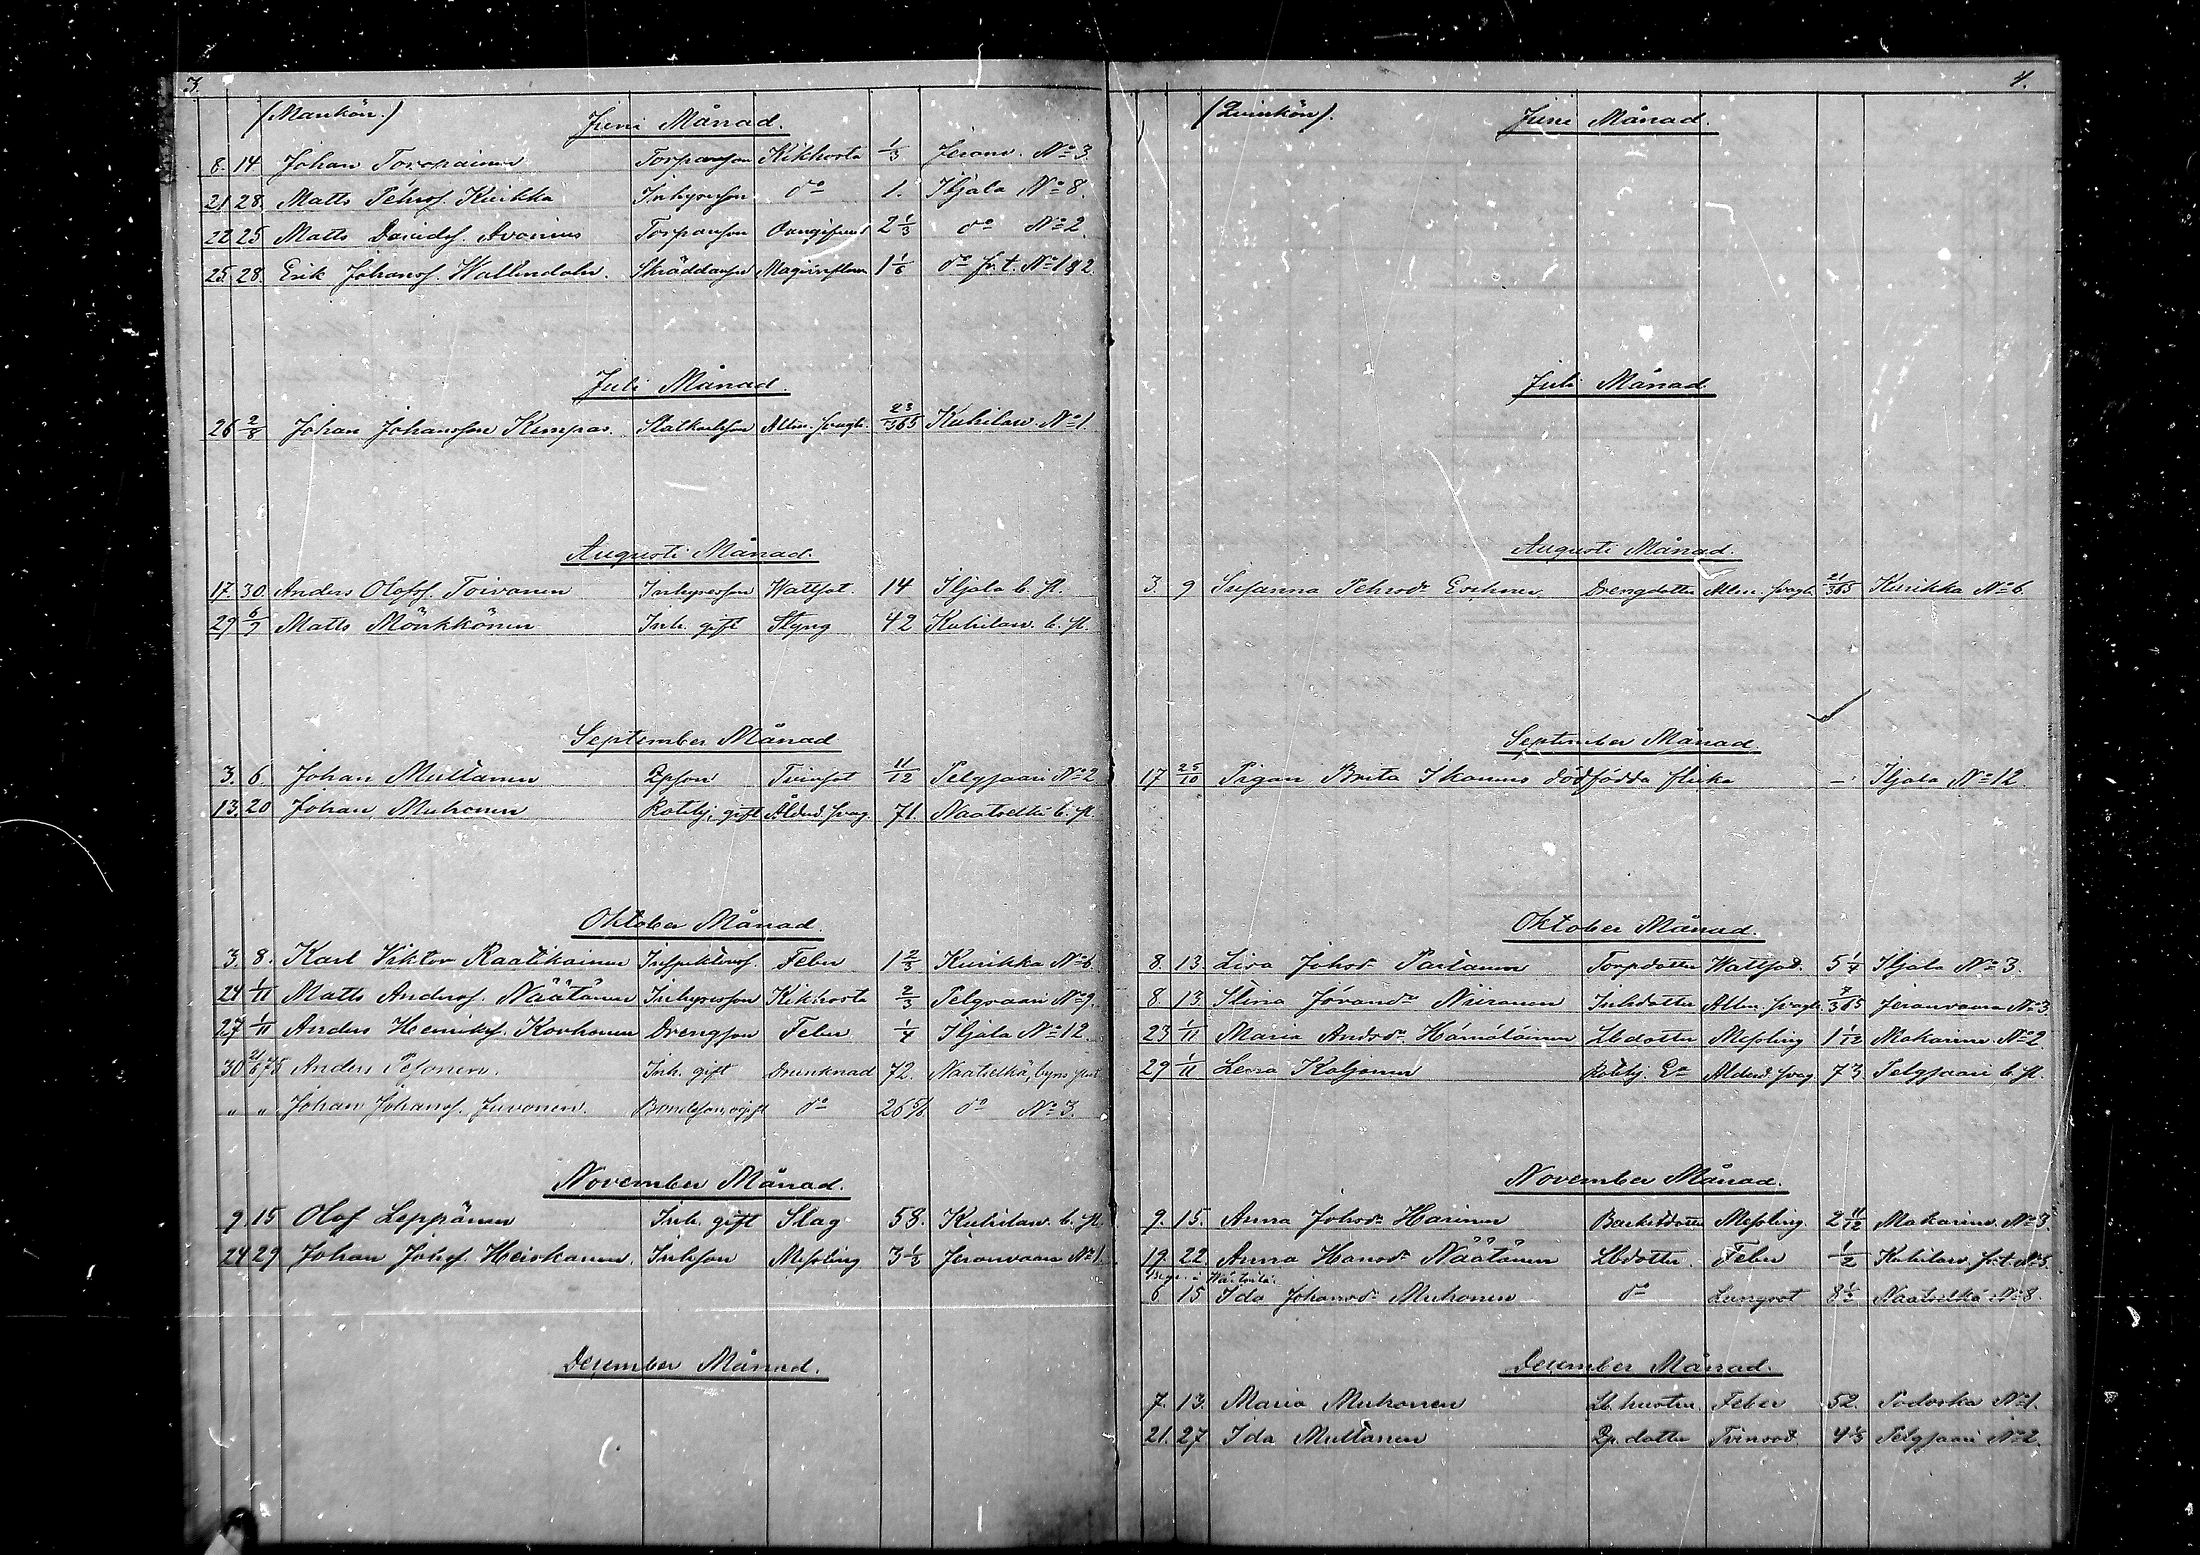 3.
(Mankön.)
Juni Månad.
8. 14. Johan Toropainen Torparson Kikhosta 1/3 Jeronv. No 3.
21 28. Matts Pehrss. Kuikka Inhyseson do 1. Iljala No 8.
22 25 Matts Davidss. Avonius Torparson 2 1/3 do No 2.
25. 28. Erik Johanss. Wallendahr. Skräddareson 1 1/6 do fr. t. No 1 & 2.
Juli Månad.
26 2/8 Johan Johansson Kempas. Allm. svagh. 23/365 Kuhilav. No 1.
Augusti Månad.
17. 30. Anders Olofss. Toivonen Inhyseson Wattsot. 14 Iljala b. st.
29 6/9 Matts Mönkkönen Inh. gift Styng 42 Kuhilav. b. st.
September Månad
3. 6. Johan Multanen Tvinsot 11/12 Pelgjaari No 2
13. 20 Johan Muhonen Rothj. gift Ålderd. svag. 71. Naatselkä b. st.
Oktober Månad.
3. 8. Karl Viktor Raatikainen Inspektorss. Feber 1 2/3 Kuikka No 6.
24 1/11 Matts Anderss. Näätänen Inhyseson Kikhosta 2/3 Pelgjaari No 9.
27 1/11 Anders Henrikss. Korhonen Drengson Feber 1/4 Iljala No 12.
30 21/6 75 Anders Pesonen. Inh. gift Drunknad 72. Naatselkä, byns
" " Johan Johanss. Juvonen. Bondeson, ogift do 26 5/6 do No 3.
November Månad.
9 15 Olof Leppänen Inh. gift Slag 58. Kuhilav. b. st.
24 29 Johan Johss. Heiskanen. Inhson Messling 3 1/2 Jeronvaara No 1.
December Månad.
4.
(Qvinkön).
Juni Månad.
Juli Månad.
Augusti Månad.
3. 9 Susanna Pehrsdr Drengdotter Allm. svagh. 21/365 Kuikka No 6.
September Månad
17 25/10 Pigan Brita Ikonens dödfödda flicka — Iljala No 12.
Oktober Månad.
8. 13. Liva Johsdr Partanen Torpdotter Wattsot. 5 1/4 Iljala No 3.
8. 13. Stina Niiranen Inhdotter Allm. svagh. 7/365 Jeronvaara No 3
23 1/11 Maria Andsdr Hämäläinen Lbdotter Messling 1 1/12 Makarinv. No 2.
29 1/11 Leena Koljonen Rothj. Ea Ålderd. svag 73. Pelgjaari b. st.
November Månad.
9. 15. Anna Johsdr Harinen Messling. 2 11/12 Makarinv. No 3.
19. 22. Anna Hansdr Näätänen Lbdotter Feber 1/2 Kuhilav. fr. t. No 5.
Begr. i Wärtsilä.
6 15 Ida Johansdr Muhonen do Lungsot 8 1/2 Naatselkä No 8.
December Månad.
7. 13. Maria Muhonen Lb. hustru. Feber 52. No 1.
21. 27 Ida Multanen dotter Tvinsot. Pelgjaari No 2.